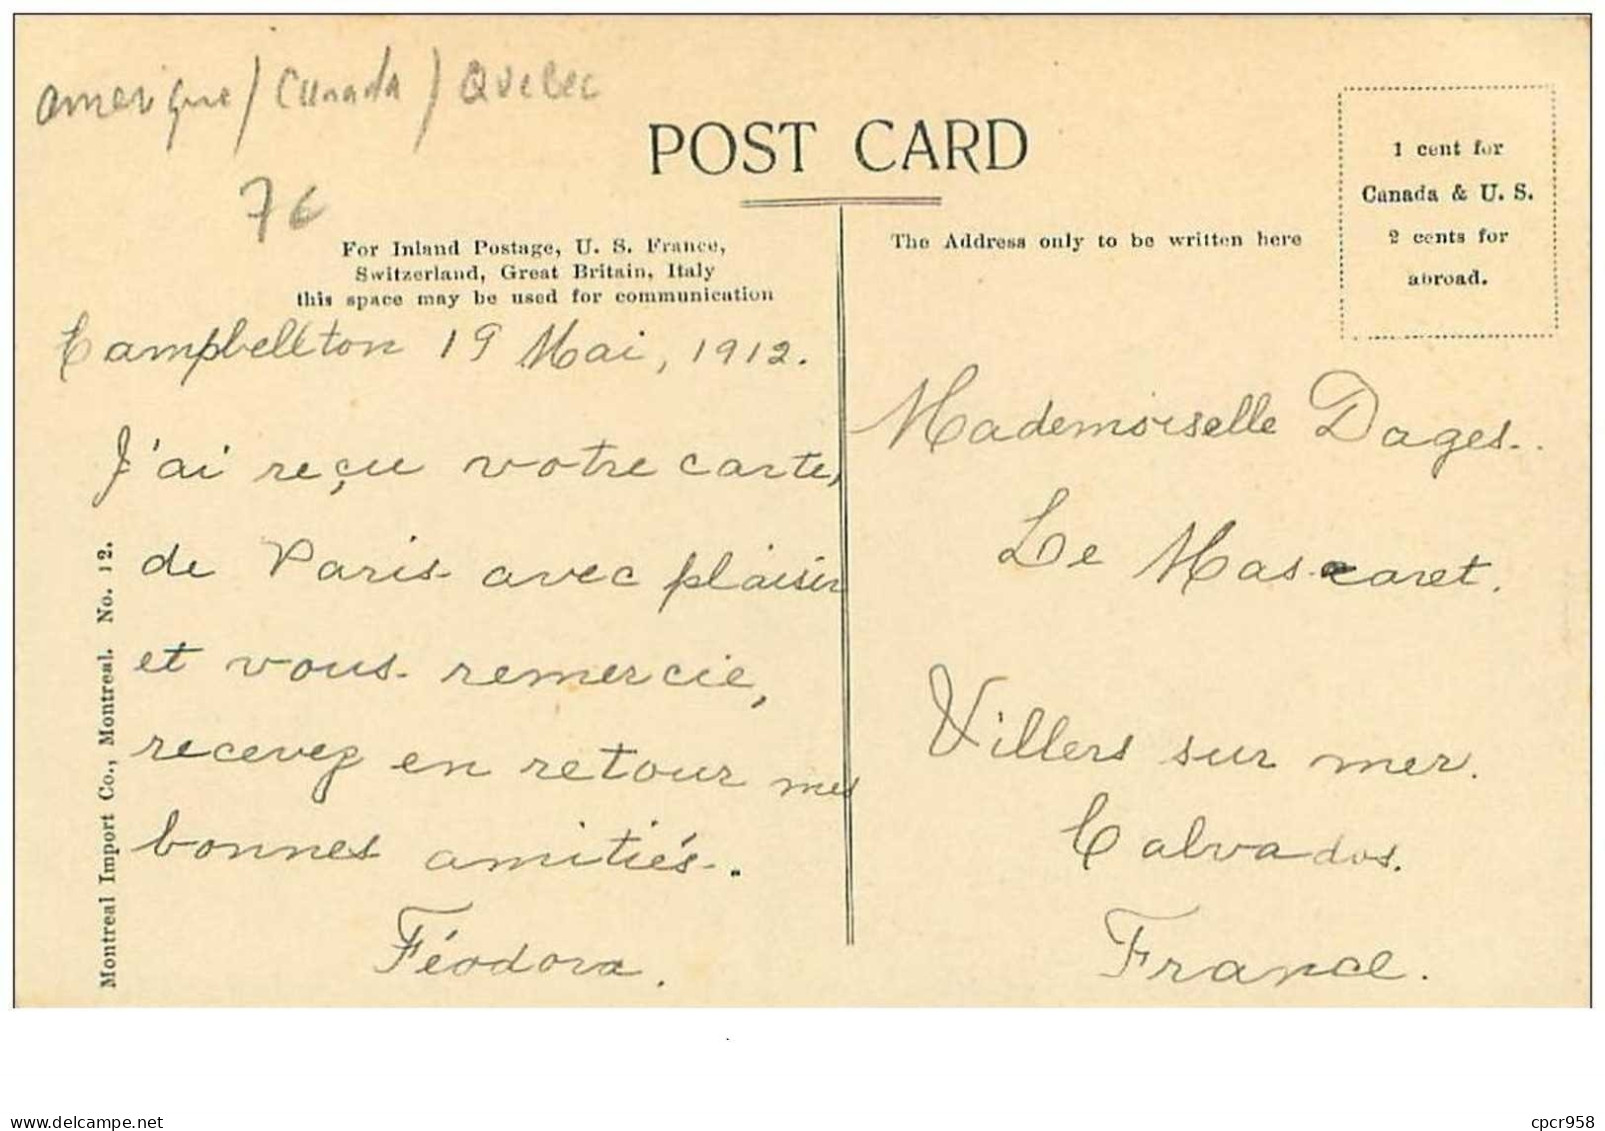 amerique / Canada / Quebec
7€
POST CARD
For Inland Postage, U. S. France,
Switzerland, Great Britain, Italy
this space may be used for communication
The Address only to be written here
1 cent for
Canada & U. S.
2 cents for
abroad.
Campbellton 19 Mai, 1912.
J'ai reçu votre carte,
de Paris avec plaisir
et vous remercie,
recevez en retour mes
bonnes amitiés.
Féodora.
Mademoiselle Dages.
Le Mascaret.
Villers sur mer.
Calvados.
France.
Montreal Import Co., Montreal. No. 12.
www.delcampe.net
cpcr958